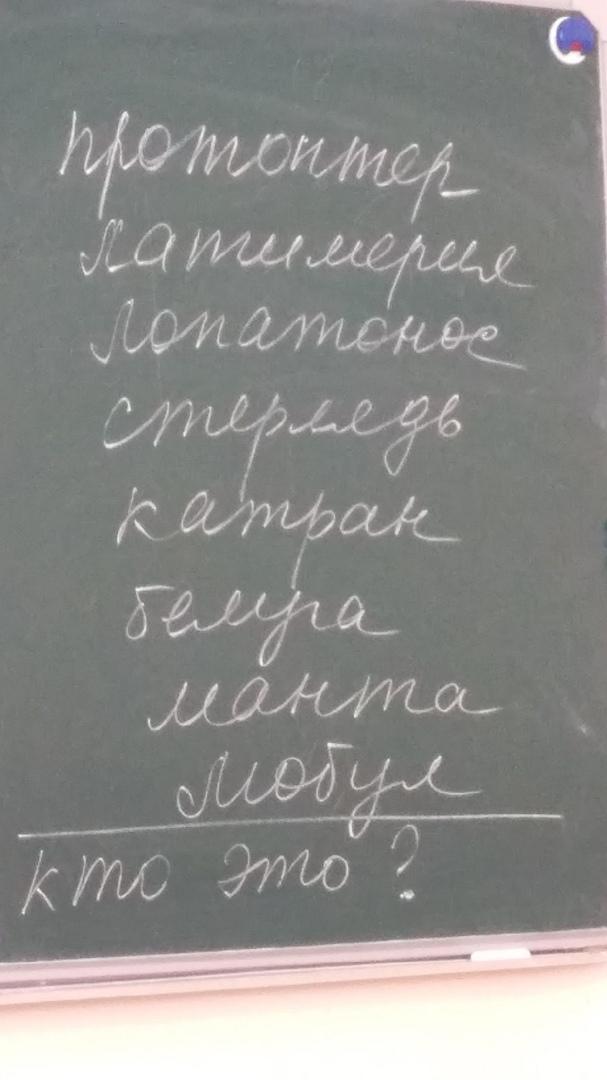 протоптер
латимерия
Лопатонос
стерлядь
катран
белуга
манта
мобул
кто это?